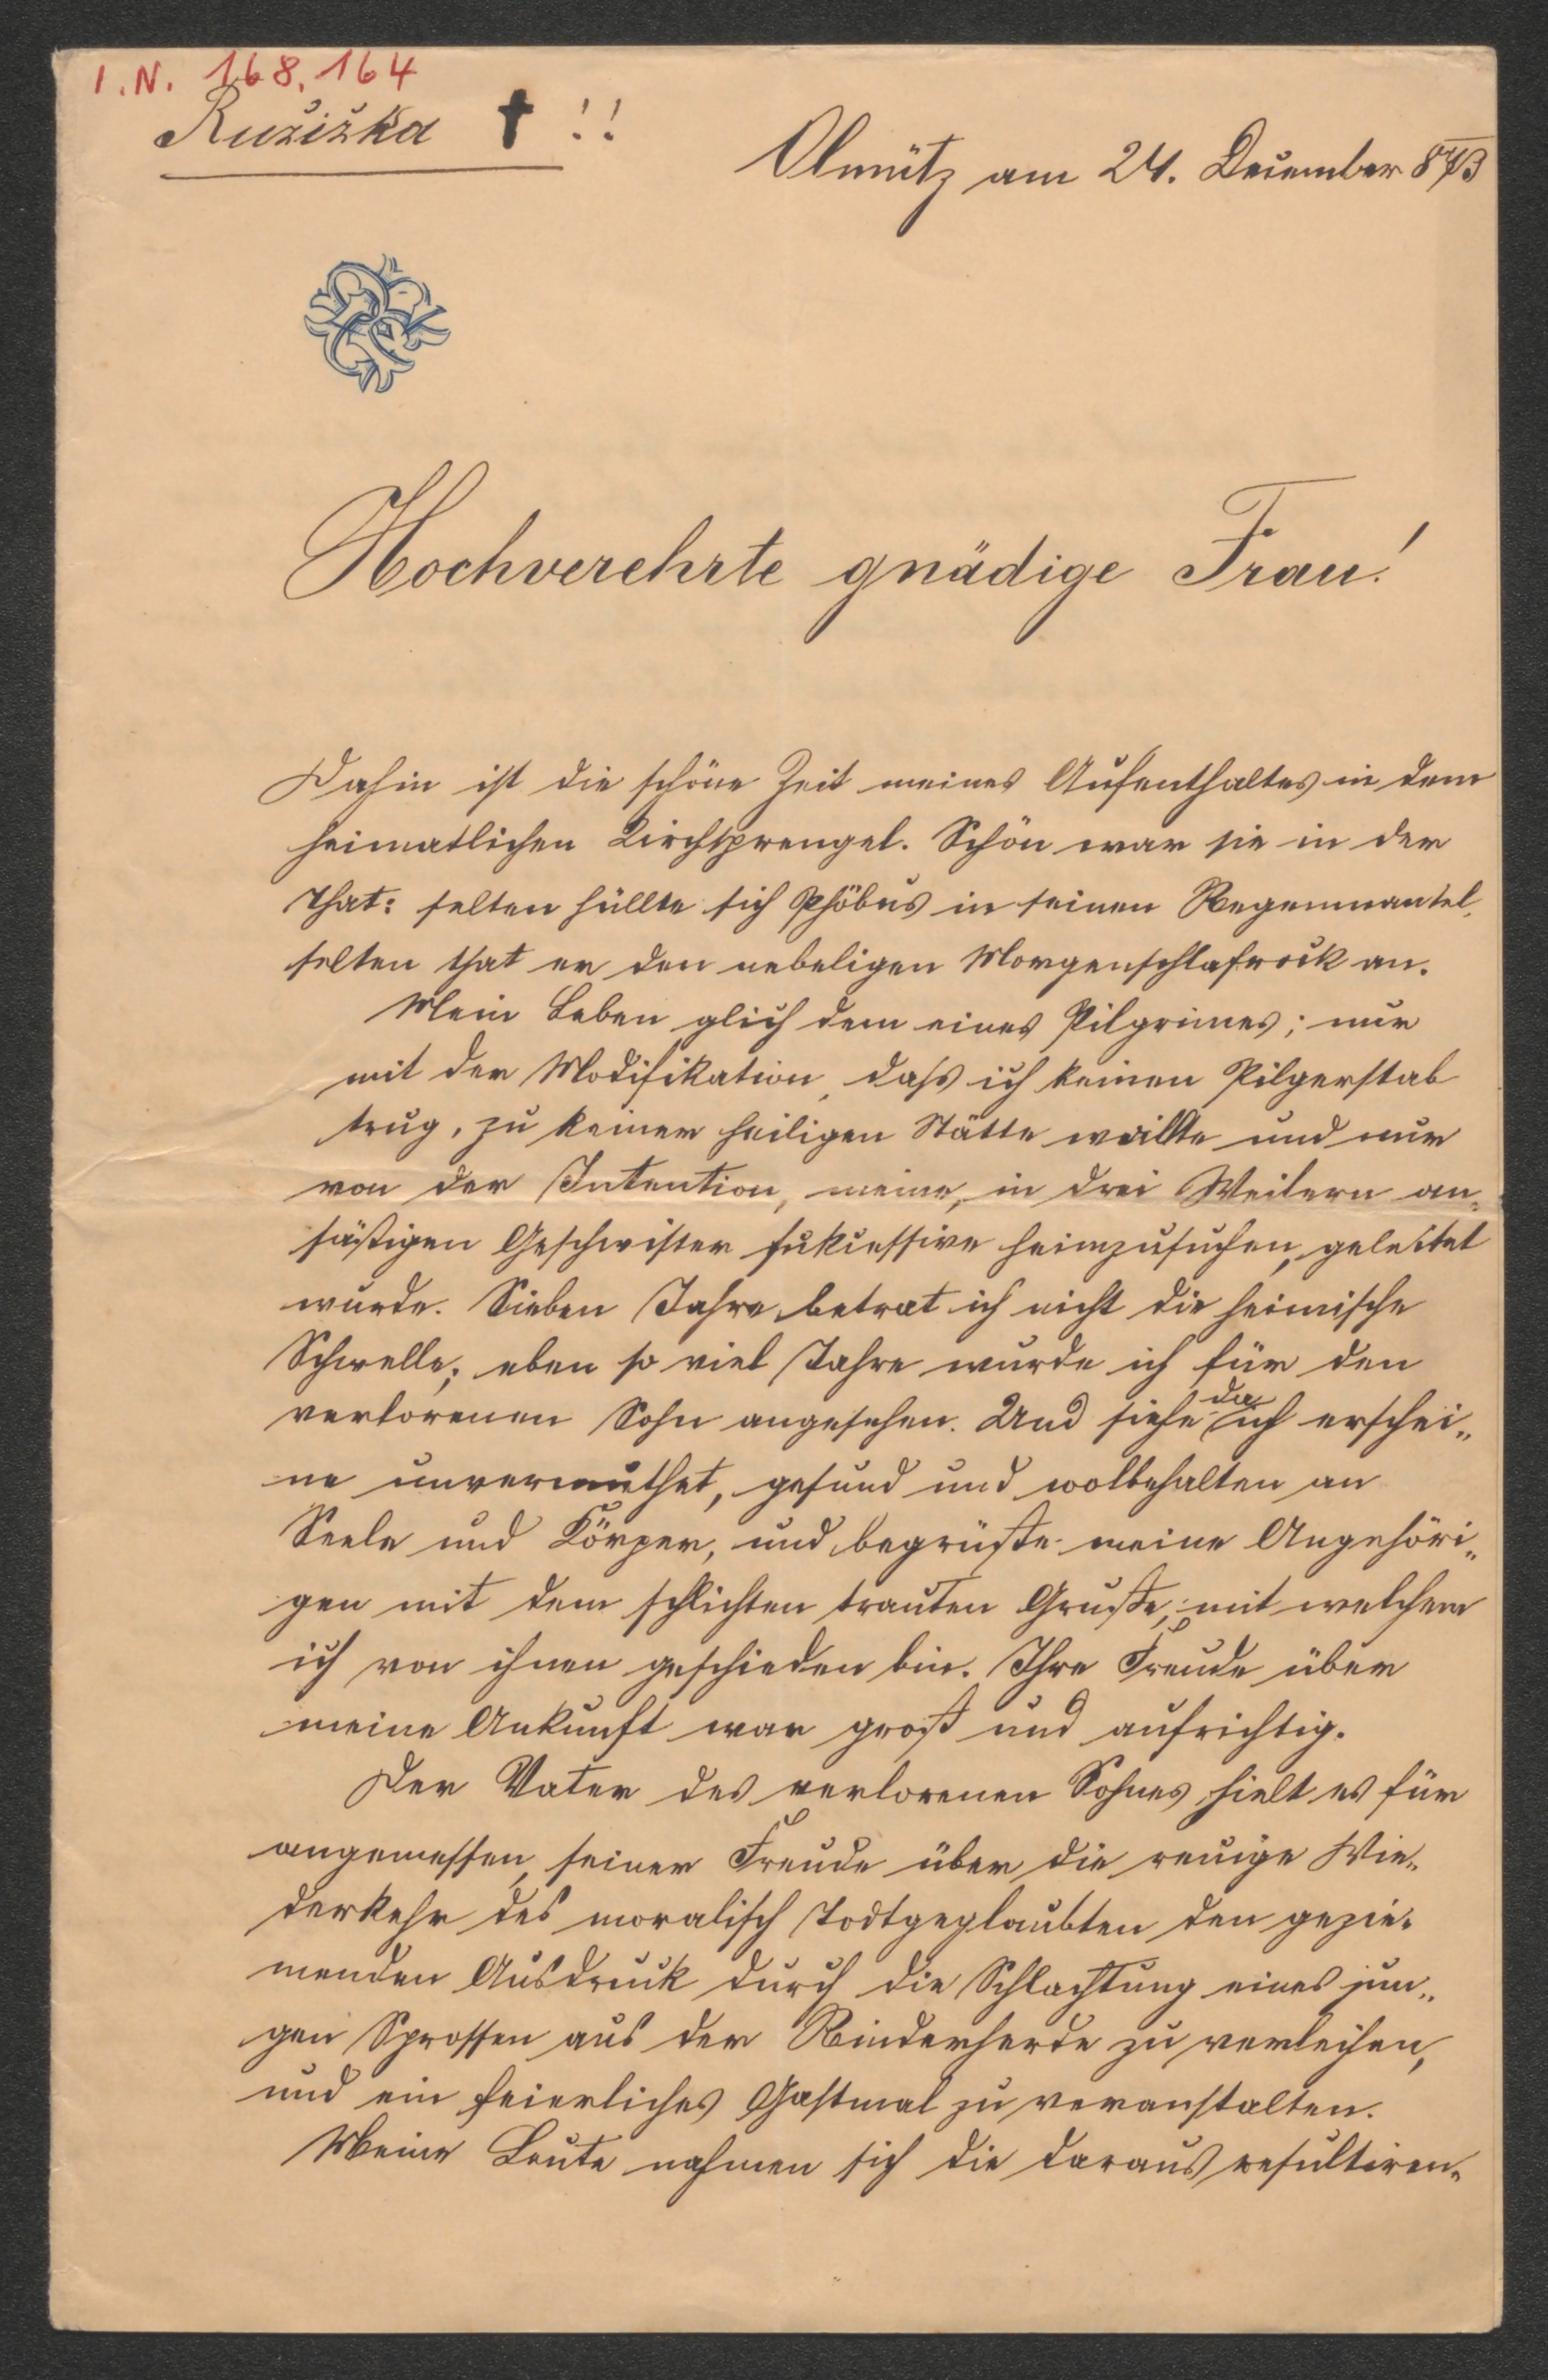 I.N. 168.164
Ružižka † !!
Olmütz am 24. Dezember 873
Hochverehrte gnädige Frau!
Dahin ist die schöne Zeit meines Aufenthaltes in dem
heimatlichen Kirchsprengel. Schön war sie in der
That: selten hüllte sich Phöbus in seinen Regenmantel,
selten that er den nebeligen Morgenschlafrock an.
Mein Leben glich dem eines Pilgrimes; nur
mit der Modifikation, daß ich keinen Pilgerstab
trug, zu keiner heiligen Stätte wallte und nur
von der Intention, meine, in drei Weilern an„
säßigen Geschwister sukcessive heimzusuchen, geleitet
wurde. Sieben Jahre betrat ich nicht die heimische
Schwelle; eben so viel Jahre wurde ich für den
verlorenen Sohn angesehen. Und siehe da ich erschei„
ne unvermuthet, gesund und wolbehalten an
Seele und Körper, und begrüßte meine Angehöri„
gen mit dem schlichten trauten Gruße, mit welchem
ich von ihnen geschieden bin. Ihre Freude über
meine Ankunft war groß und aufrichtig.
Der Vater des verlorenen Sohnes hielt es für
angemessen, seiner Freude über die reuige Wie„
derkehr des moralisch Todtgeglaubten den gezie„
menden Ausdruck durch die Schlachtung eines jun„
gen Sprossen aus der Rinderherde zu verleihen,
und ein feierliches Gastmal zu veranstalten.
Meine Leute nahmen sich die daraus resultiren„